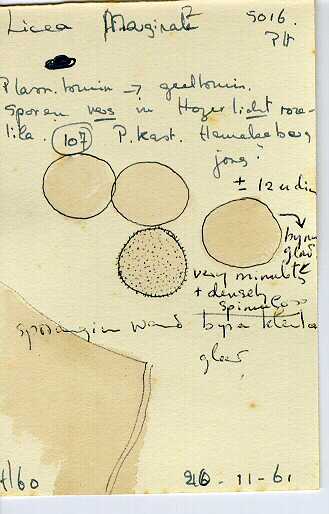 Licea Marginata 5016.
Plasm. bruin → geelbruin.
Sporen vers in Hoger licht roze-
lila. 107 P. Kast.
jong?
± 12 u diam
bijna
glad
very minutely
+ densely
spinulose
sporangium wand bijna kleurloos
glad
4/60 26-11-61